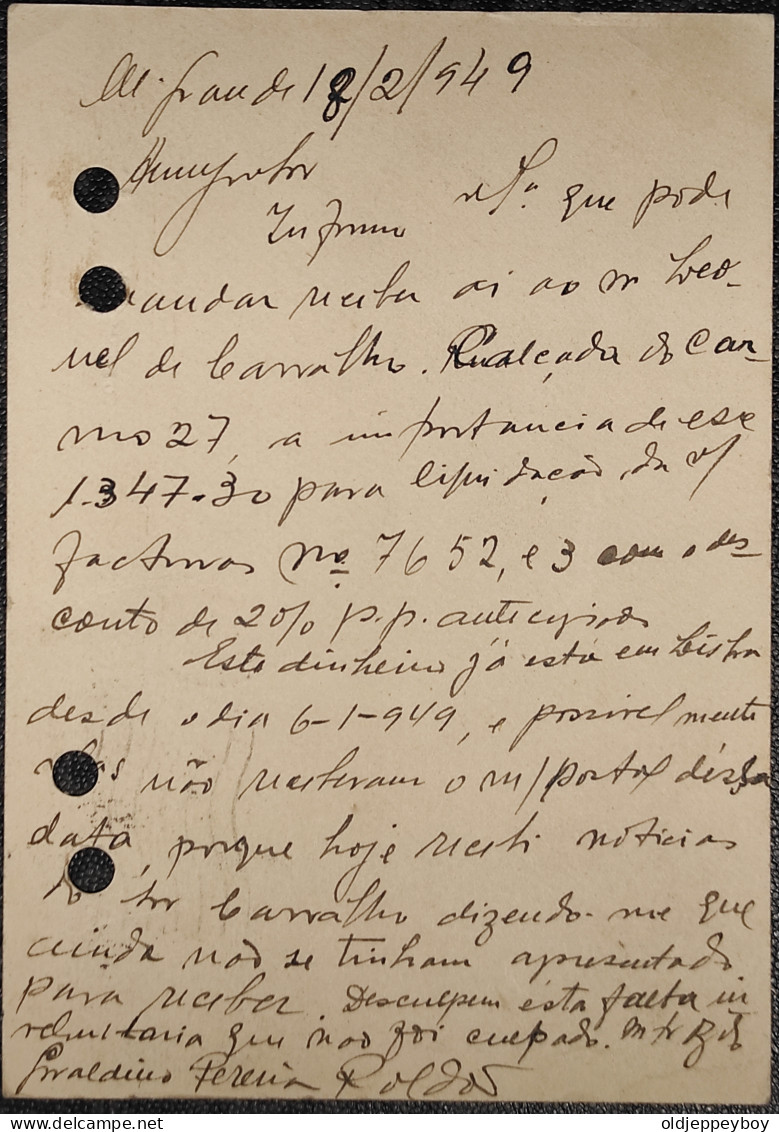 Grande 18/2/949
Informo v/Sª. que pode
mandar receber ai ao m Leo-
nel de Carvalho. Calçada do Car-
mo 27, a importancia de esc
1.347.30 para liquidação da v/
facturas nº 7652, e 3 com o des-
conto de 2% p.p. antecipado
Este dinheiro já está em Lisboa
desde o dia 6-1-949, e possivelmente
não receberam o m/postal déssa
data, porque hoje recebi noticias
do Snr Carvalho dizendo-me que
ainda não se tinham apresentado
para receber. Desculpem esta falta in
voluntaria que não foi culpado.
Pereira Roldão
oldjeppeyboy